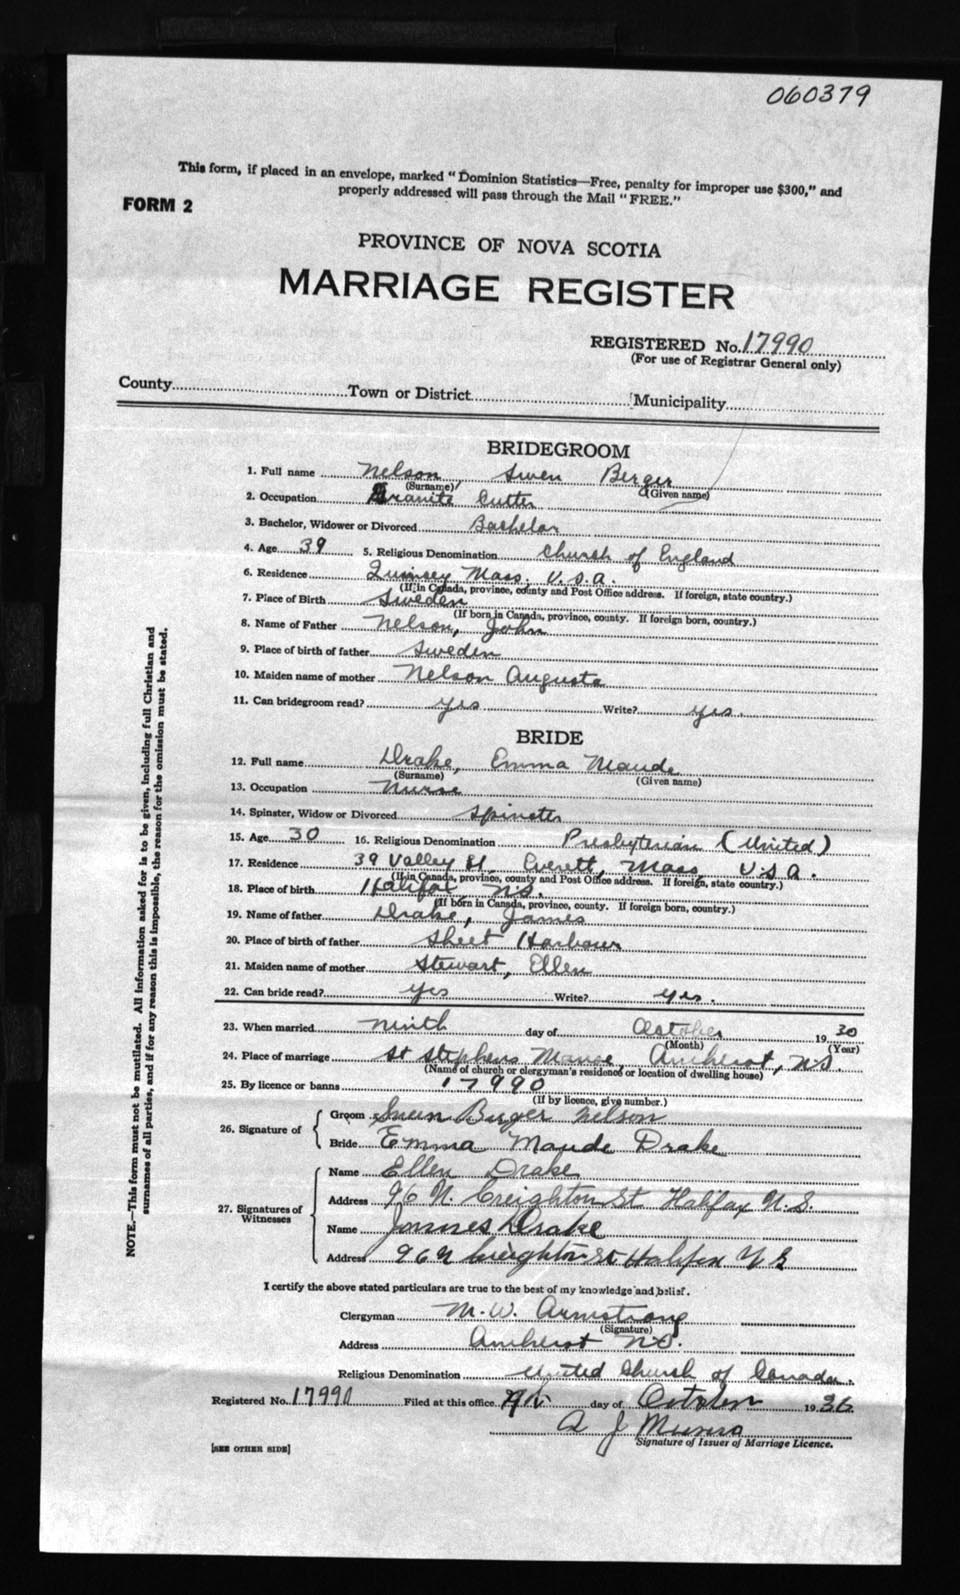 060379
This form, if placed in an envelope, marked "Dominion Statistics—Free, penalty for improper use $300," and
properly addressed will pass through the Mail "FREE."
FORM 2
PROVINCE OF NOVA SCOTIA
MARRIAGE REGISTER
REGISTERED No. 17990
(For use of Registrar General only)
County Town or District Municipality
BRIDEGROOM
1. Full name Nelson, Swen Berger
(Surname) (Given name)
2. Occupation Granite Cutter
3. Bachelor, Widower or Divorced Bachelor
4. Age 39 5. Religious Denomination Church of England
6. Residence Quinsey Mass. U.S.A.
(If in Canada, province, county and Post Office address. If foreign, state country.)
7. Place of Birth Sweden
(If born in Canada, province, county. If foreign born, country.)
8. Name of Father Nelson, John
9. Place of birth of father Sweden
10. Maiden name of mother Nelson Augusta
11. Can bridegroom read? yes Write? yes.
BRIDE
12. Full name Drake, Emma Maude
(Surname) (Given name)
13. Occupation Nurse
14. Spinster, Widow or Divorced Spinster
15. Age 30 16. Religious Denomination Presbyterian (United)
17. Residence 39 Valley St. Everett, Mass. U.S.A.
(If in Canada, province, county and Post Office address. If foreign, state country.)
18. Place of birth Halifax N.S.
(If born in Canada, province, county. If foreign born, country.)
19. Name of father Drake, James
20. Place of birth of father Sheet Harbour
21. Maiden name of mother Stewart, Ellen
22. Can bride read? yes Write? yes.
23. When married ninth day of October 1930
(Month) (Year)
24. Place of marriage St Stephens Manse, Amherst, N.S.
(Name of church or clergyman's residence, or location of dwelling house)
25. By licence or banns 17990
(If by licence, give number.)
26. Signature of Groom Sveen Birger Nelson
Bride Emma Maude Drake
27. Signatures of Witnesses
Name Ellen Drake
Address 96 N. Creighton St Halifax N.S.
Name James Drake
Address 96 N Creighton St Halifax N S
I certify the above stated particulars are true to the best of my knowledge and belief.
Clergyman M. W. Armstrong
(Signature)
Address Amherst N.S.
Religious Denomination United Church of Canada.
Registered No. 17990 Filed at this office day of October 19
A J Munro
Signature of Issuer of Marriage Licence.
[SEE OTHER SIDE]
NOTE.—This form must not be mutilated. All information asked for is to be given, including full Christian and
surnames of all parties, and if for any reason this is impossible, the reason for the omission must be stated.